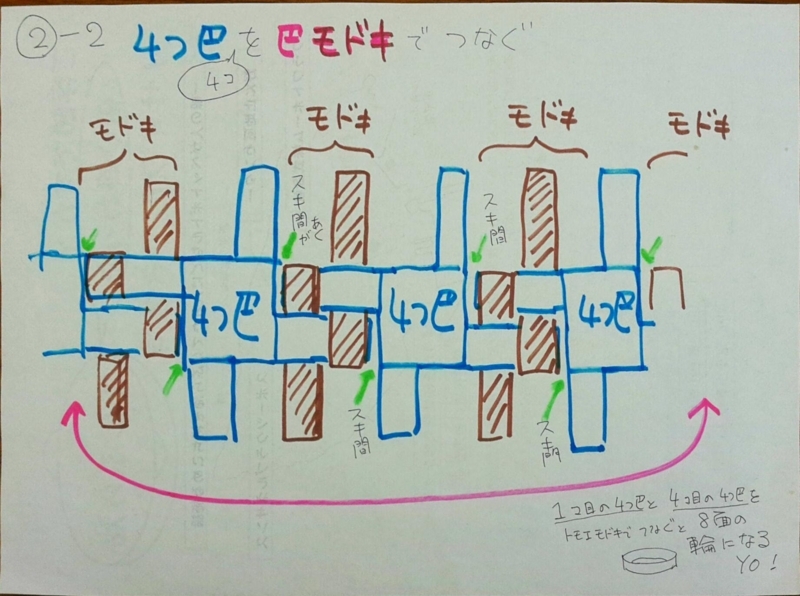 ②-2 4つ巴を巴モドキでつなぐ
4コ
モドキ
モドキ
モドキ
モドキ
スキ間があく
スキ間
4つ巴
4つ巴
4つ巴
スキ間
スキ間
1コ目の4つ巴と4コ目の4つ巴を
トモエモドキでつなぐと8面の
輪になる
YO!